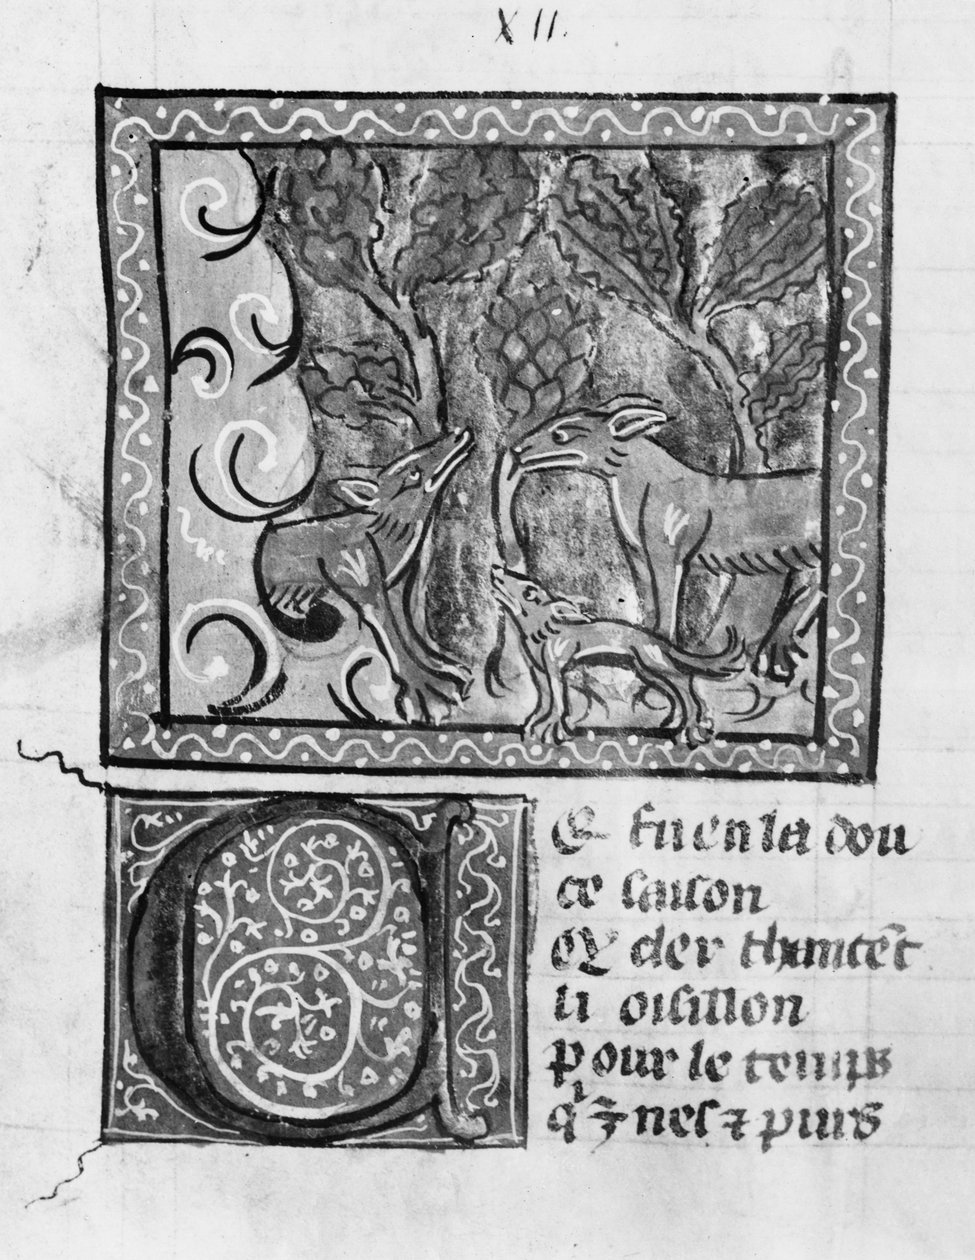 XII.
CE fu en la dou
ce saison
Qe cler chantēt
li oisillon
pour le temps
qͥ ē nes ⁊ purs